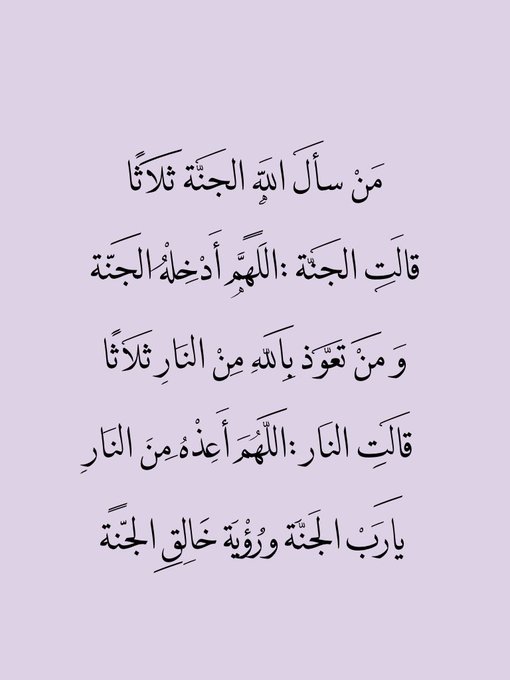 مَنْ سأَلَ اللَّهِ الجَنَّة ثَلَاثًا
قالَتِ الجَنَّة :اللَهًمَّ أَدْخِلهُ الجَنّة
وَ مَنْ تَعَوَّذ بِاَللهِ مِنْ النَارِ ثَلَاثًا
قَالَتِ النَار :اللَّهُمَ أَعِذْهُ مِنَ النَارِ
يارَبَ الجَنَّة ورُؤْيَة خَالِقِ الجنَّة